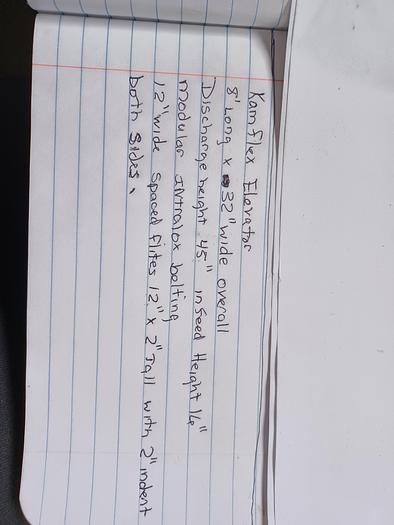 Kamflex Elevator
8' Long x 32" wide overall
Discharge height 45" infeed Height 14"
modular Intralox belting
12" wide spaced flites 12" x 2" Tall with 2" indent
both sides.